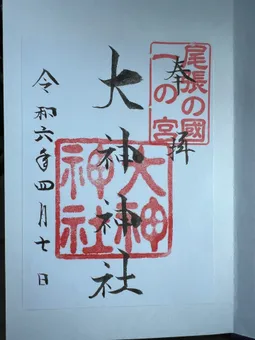 奉拝
尾張の國
一の宮
大神神社
大神
神社
令和六年四月七日